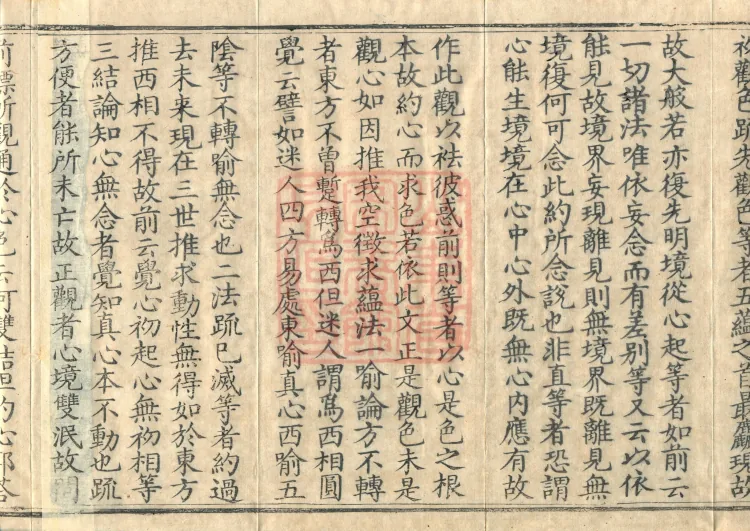 初觀色䟽先觀色等者五蘊之首最麤現故
故大般若亦復先明境從心起等者如前云
一切諸法唯依妄念而有差别等又云以依
能見故境界妄現離見則無境界既離見無
境復何可念此約所念說也非直等者恐謂
心能生境境在心中心外既無心内應有故
作此觀以袪彼惑前則等者以心是色之根
本故約心而求色若依此文正是觀色未是
觀心如因推我空徵求蘊法一喻論方不轉
者東方不曾蹔轉爲西但迷人謂爲西相圓
覺云譬如迷人四方易處東喻真心西喻五
陰等不轉喻無念也二法䟽已滅等者約過
去未來現在三世推求動性無得如於東方
推西相不得故前云覺心初起心無初相等
三結論知心無念者覺知真心本不動也䟽
方便者能所未亡故正觀者心境雙泯故問
前標所觀通於心色云何雙結但約心耶答